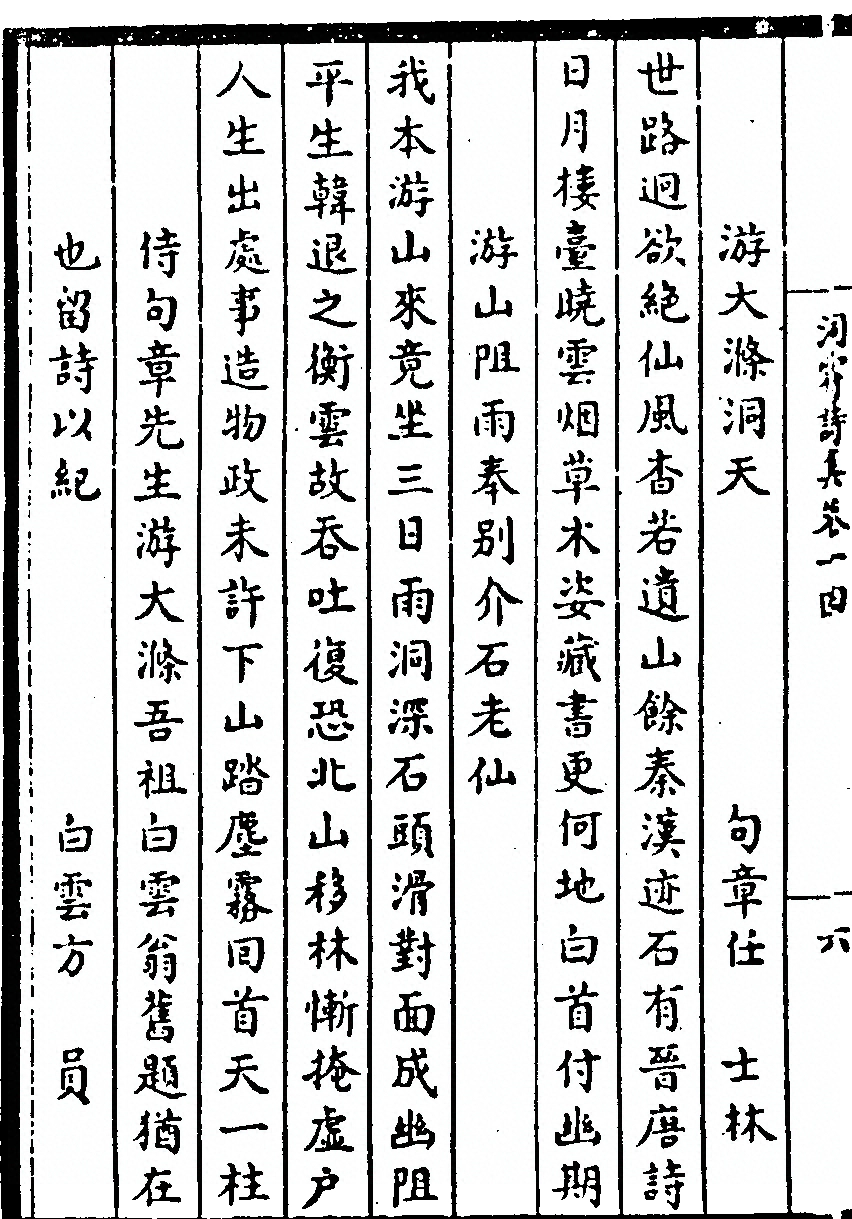 洞霄詩集卷一四
六
游大滌洞天
句章任 士林
世路迥欲絶仙風杳若遺山餘秦漢迹石有晉唐詩
日月棲臺曉雲烟草木姿藏書更何地白首付幽期
游山阻雨奉别介石老仙
我本游山來竟坐三日雨洞深石頭滑對面成幽阻
平生韓退之衡雲故吞吐復恐北山移林慚掩虚户
人生出處事造物政未許下山踏塵霧回首天一柱
侍句章先生游大滌吾祖白雲翁舊題猶在
也留詩以紀
白雲方 員